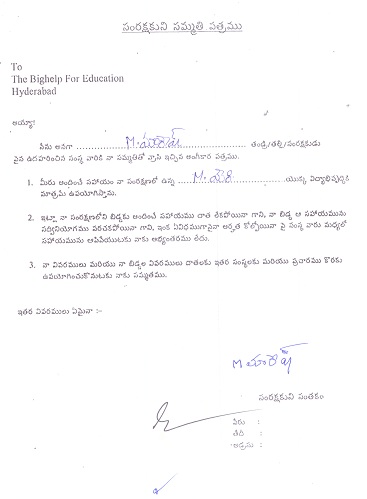 సంరక్షకుని సమ్మతి పత్రము
To
The Bighelp For Education
Hyderabad
అయ్యా!
నేను అనగా ........ M. ........ తండ్రి/తల్లి/సంరక్షకుడు
పైన ఉదహరించిన సంస్థ వారికి నా సమ్మతితో వ్రాసి ఇచ్చిన అంగీకార పత్రము.
1. మీరు అందించే సహాయం నా సంరక్షణలో ఉన్న ........ M. ........ యొక్క విద్యాభివృద్ధికి
మాత్రమే ఉపయోగిస్తాను.
2. ఇట్లా నా సంరక్షణలోని బిడ్డకు అందించే సహాయము దాత లేకపోయినా గాని, నా బిడ్డ ఆ సహాయమును
సద్వినియోగము పరచకపోయినా గాని, ఇంక ఏవిధముగానైనా అర్హత కోల్పోయినా పై సంస్థ వారు మధ్యలో
సహాయమును ఆపివేయుటకు నాకు అభ్యంతరము లేదు.
3. నా వివరములు మరియు నా బిడ్డల వివరములు దాతలకు ఇతర సంస్థలకు మరియు ప్రచారము కొరకు
ఉపయోగించుకొనుటకు నాకు సమ్మతము.
ఇతర వివరములు ఏమైనా :-
M
సంరక్షకుని సంతకం
పేరు :
తేది :
అడ్రసు :